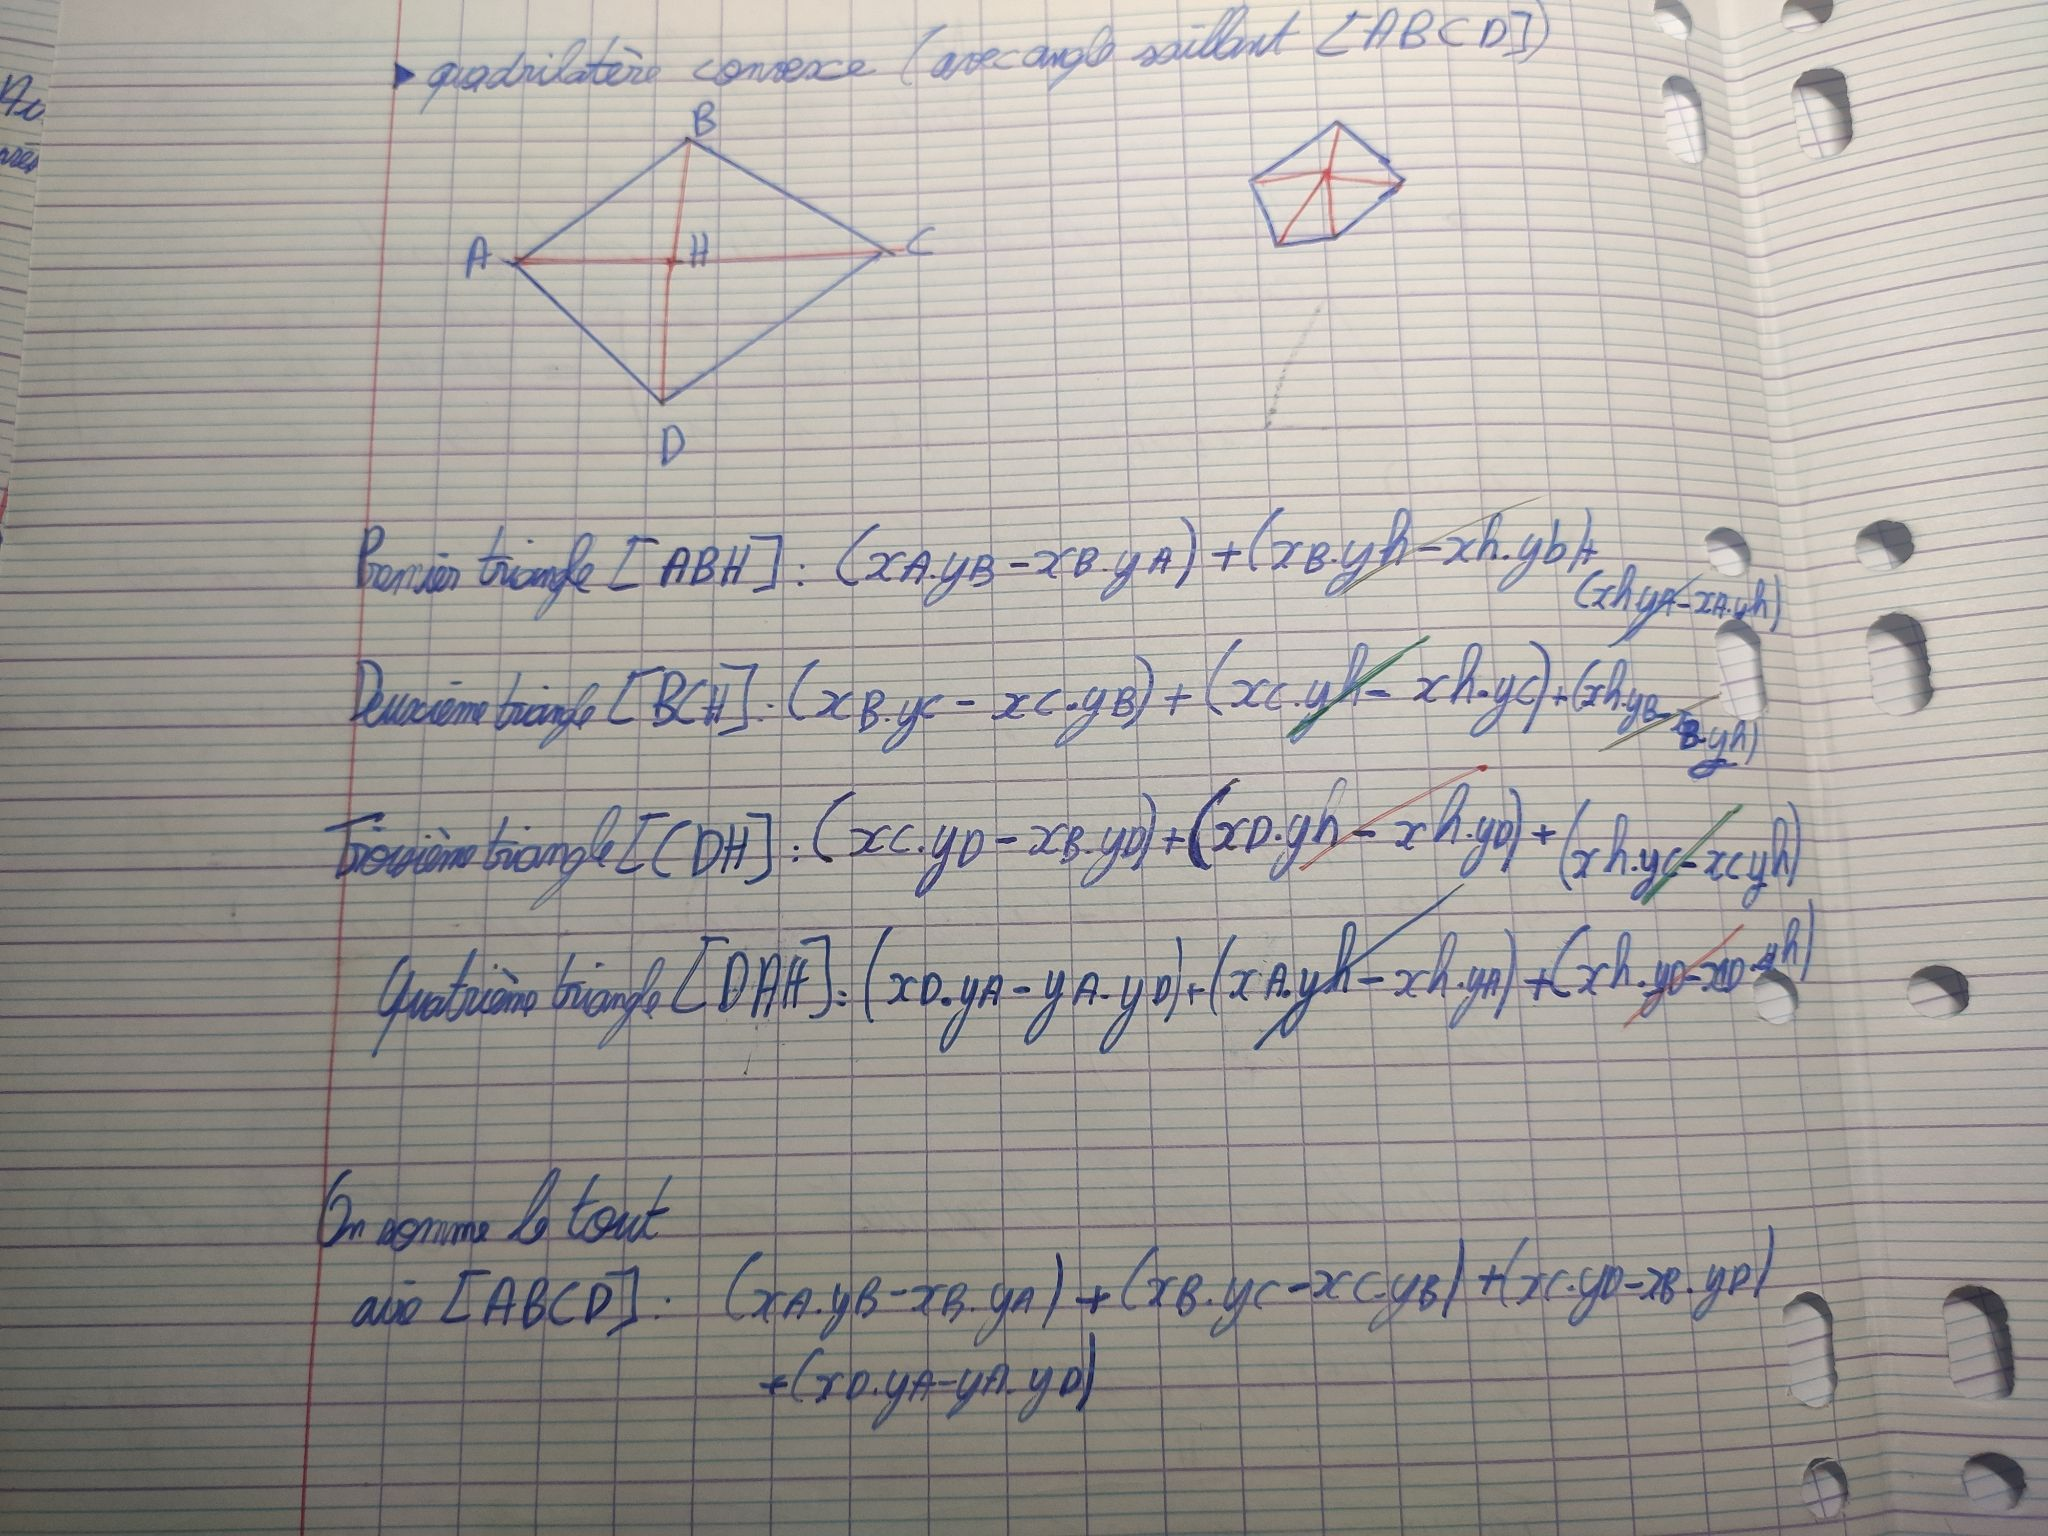 ► quadrilatère convexe (avec angle saillant [ABCD])
B
A
H
C
D
Premier triangle [ABH] : (xA.yB - xB.yA) + (xB.yh - xh.yb) +
(xh yA - xA.yh)
Deuxième triangle [BCH] : (xB.yC - xC.yB) + (xC.yh - xh.yC) + (xh.yB -
B.yh)
Troisième triangle [CDH] : (xC.yD - xB.yD) + (xD.yh - xh.yD) +
(xh.yC - xC yh)
Quatrième triangle [DAH] : (xD.yA - yA.yD) + (xA.yh - xh.yA) + (xh.yD - xD.yh)
On nomme le tout
[ABCD] : (xA.yB - xB.yA) + (xB.yC - xC.yB) + (xC.yD - xB.yD)
+ (xD.yA - yA.yD)